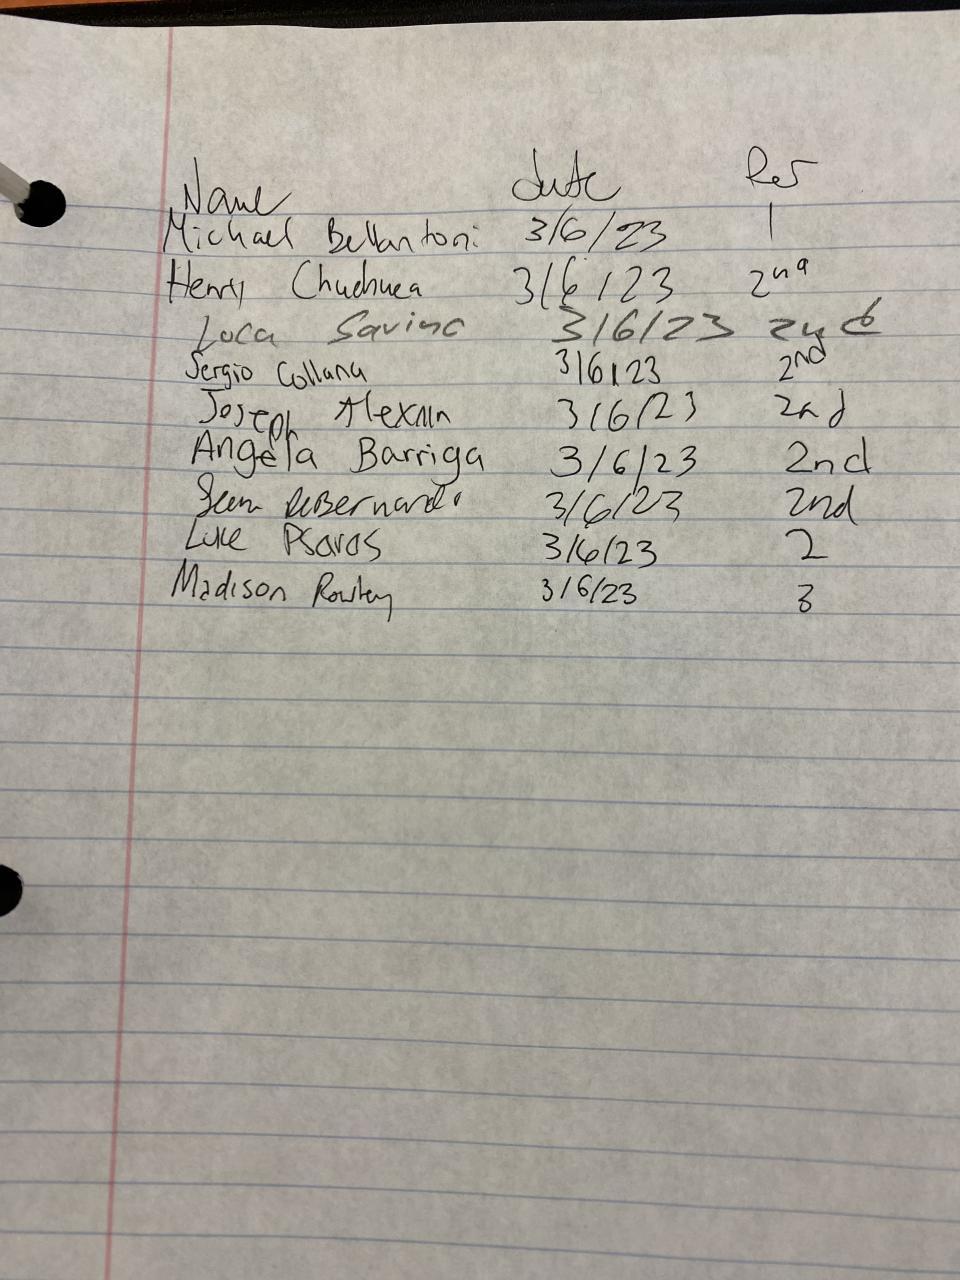 Name date Per
Michael Bellantoni 3/6/23 1
Henry Chuchuca 3/6/23 2nd
Luca Savino 3/6/23 2nd
Sergio Collana 3/6/23 2nd
Joseph 3/6/23 2nd
Angela Barriga 3/6/23 2nd
Sean DeBernardo 3/6/23 2nd
Luke Psaros 3/6/23 2
Madison Rowley 3/6/23 3